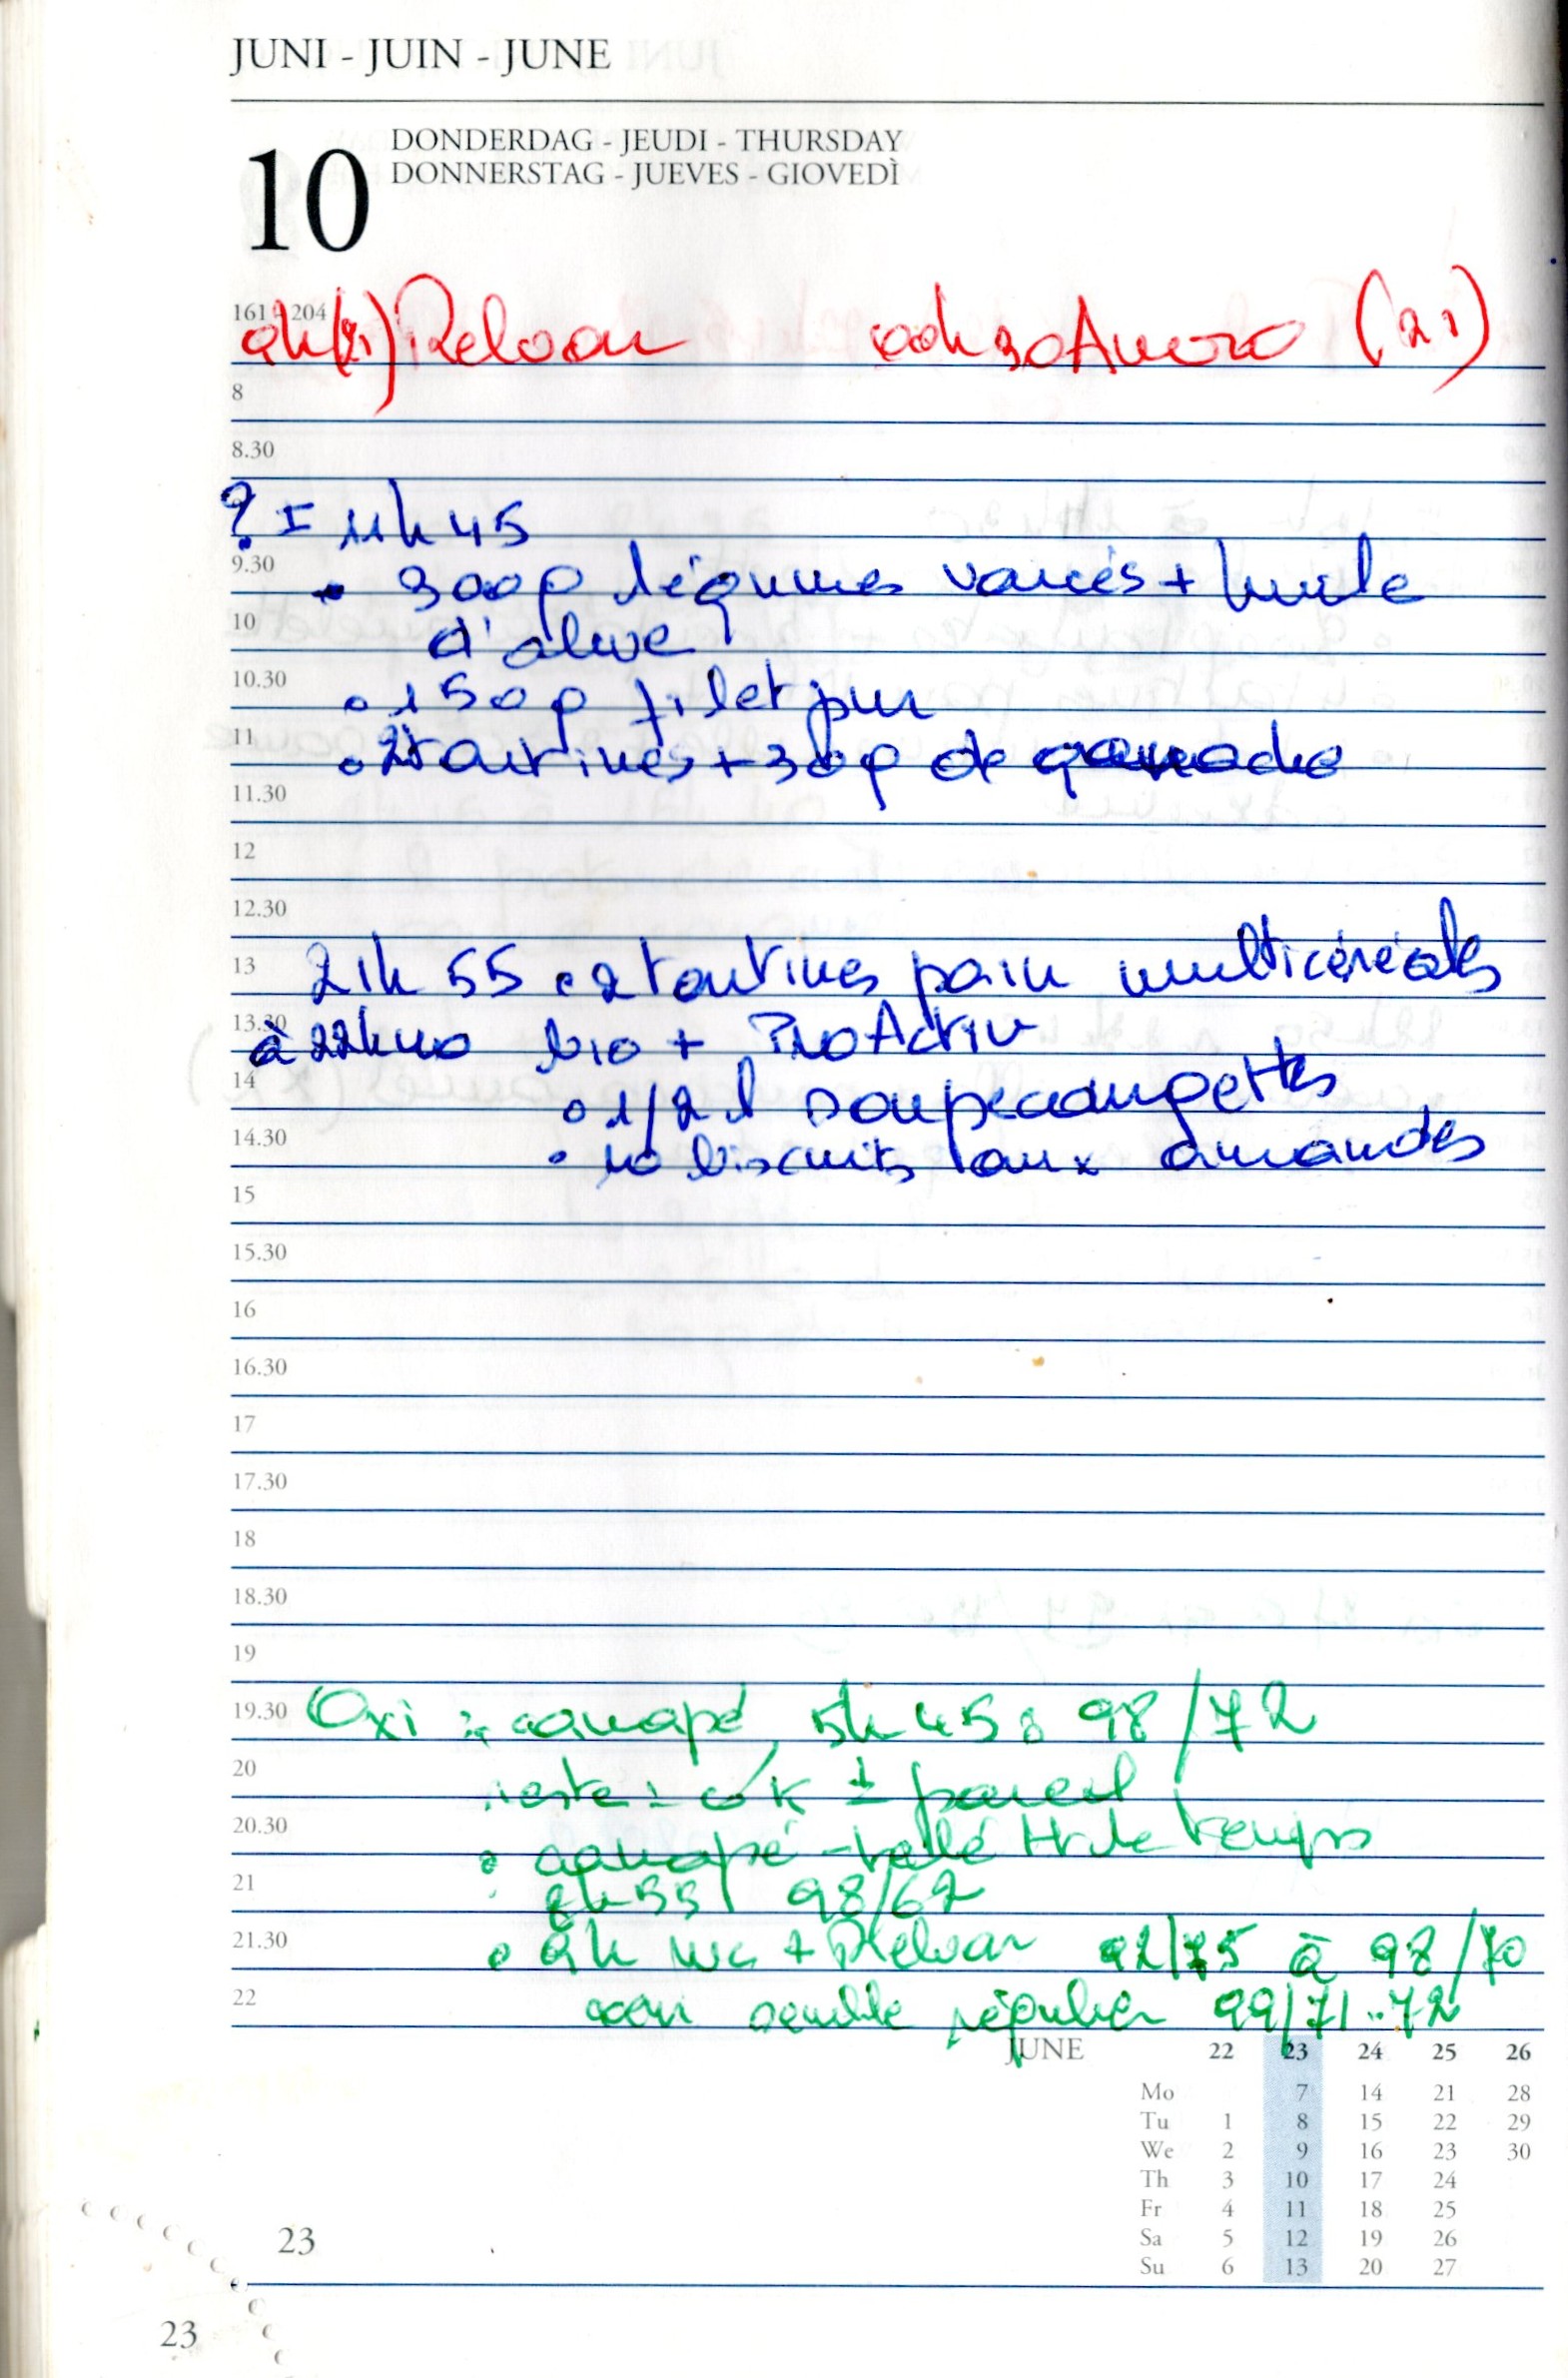 JUNI - JUIN - JUNE
10
DONDERDAG - JEUDI - THURSDAY
DONNERSTAG - JUEVES - GIOVEDÌ
161 - 204
9h (21) Relvar 30 Anoro (21)
8
8.30
? = 11h45
9.30
• 300g légumes variés + huile
10
d'olive
10.30
• 150g filet pur
11
• 2 tartines + 30g de
11.30
12
12.30
13
21h55 • 2 tartines pain multicéréales
13.30
à 22h40 bio + ProActiv
14
• 1/2 l soupe courgettes
14.30
• 10 biscuits aux amandes
15
15.30
16
16.30
17
17.30
18
18.30
19
19.30
Oxi : canapé 5h45 : 98/72
20
reste : o/k ± pareil
20.30
• canapé - télé tt le temps
21
8h55 98/67
21.30
• 9h wc + Relvar 92/75 à 98/70
22
semble régulier 99/71..72
JUNE 22 23 24 25 26
Mo 7 14 21 28
Tu 1 8 15 22 29
We 2 9 16 23 30
Th 3 10 17 24
Fr 4 11 18 25
Sa 5 12 19 26
Su 6 13 20 27
23
23